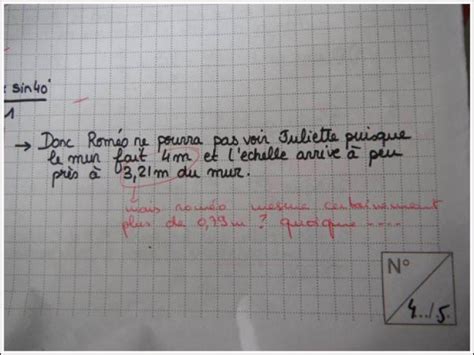 x sin40°
1
→ Donc Roméo ne pourra pas voir Juliette puisque
le mur fait 4m et l'échelle arrive à peu
près à 3,21m du mur.
mais roméo mesure certainement
plus de 0,79m ? quoique ....
N°
4../5.